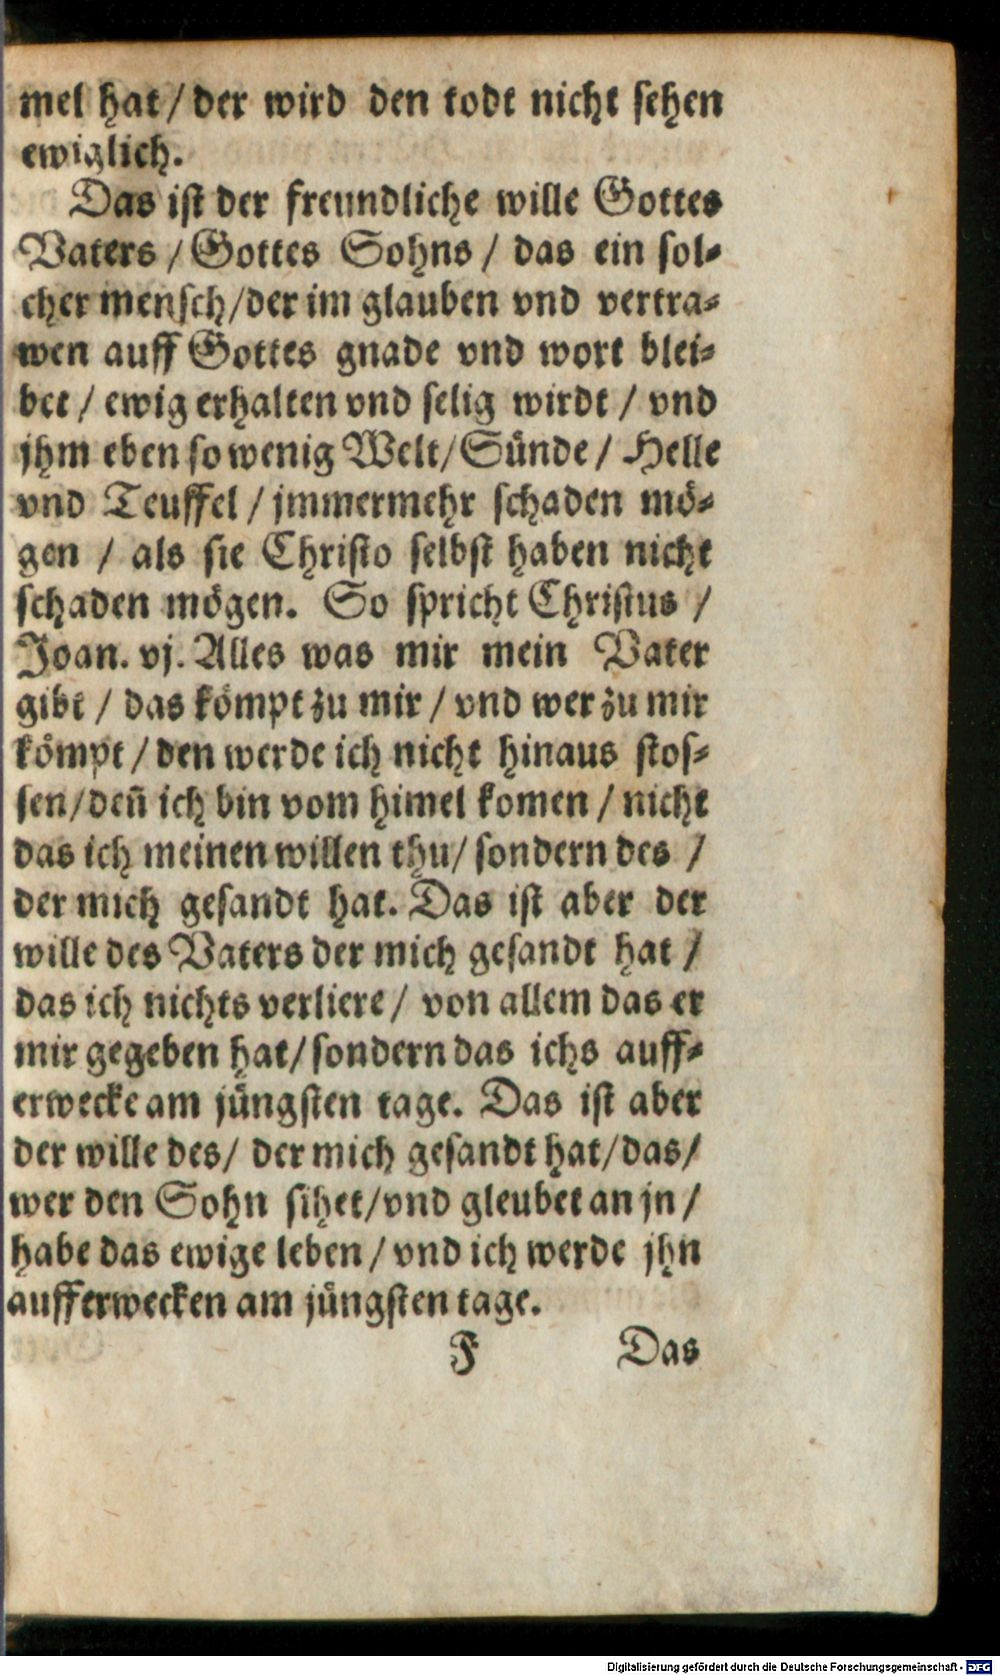 mel hat / der wird den todt nicht sehen
ewiglich.
Das ist der freundliche wille Gottes
Vaters / Gottes Sohns / das ein sol-
cher mensch / der im glauben vnd vertra-
wen auff Gottes gnade vnd wort blei-
bet / ewig erhalten vnd selig wirdt / vnd
jhm eben so wenig Welt / Sünde / Helle
vnd Teuffel / jmmermehr schaden mö-
gen / als sie Christo selbst haben nicht
schaden mögen. So spricht Christus /
Joan. vj. Alles was mir mein Vater
gibt / das kömpt zu mir / vnd wer zu mir
kömpt / den werde ich nicht hinaus stos-
sen / deñ ich bin vom himel komen / nicht
das ich meinen willen thu / sondern des /
der mich gesandt hat. Das ist aber der
wille des Vaters der mich gesandt hat /
das ich nichts verliere / von allem das er
mir gegeben hat / sondern das ichs auff-
erwecke am jüngsten tage. Das ist aber
der wille des / der mich gesandt hat / das /
wer den Sohn sihet / vnd gleubet an jn /
habe das ewige leben / vnd ich werde jhn
aufferwecken am jüngsten tage.
F Das
Digitalisierung gefördert durch die Deutsche Forschungsgemeinschaft - DFG